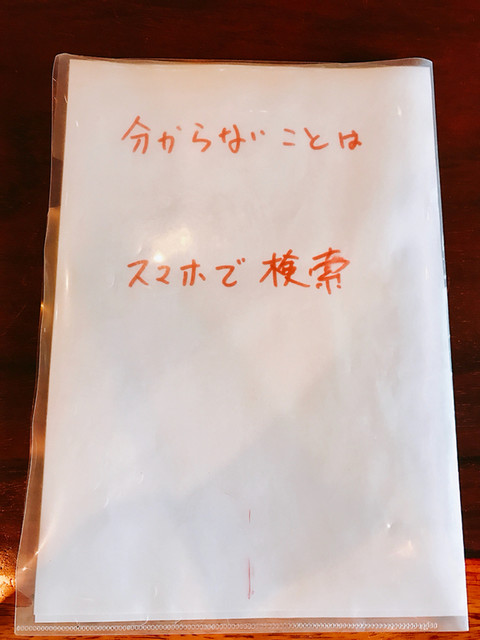 分からないことは
スマホで検索